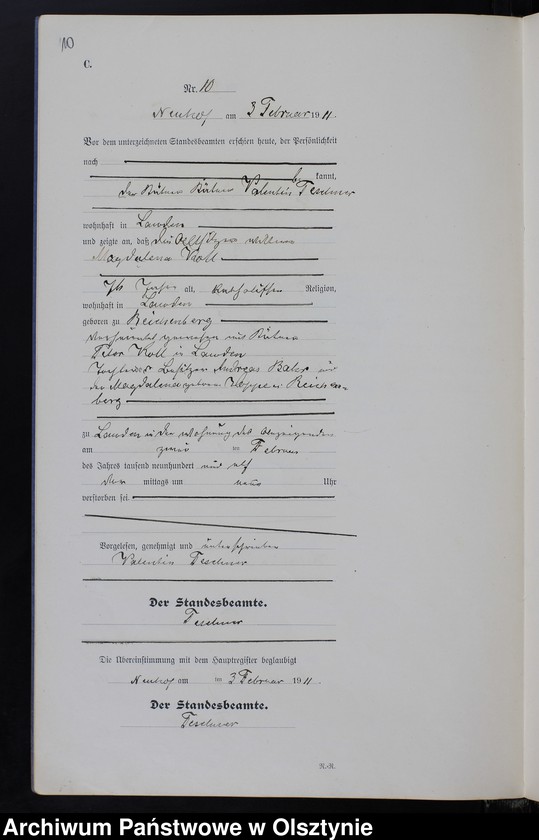 10
C.
Nr. 10
Neuhof am 3 Februar 1911.
Vor dem unterzeichneten Standesbeamten erschien heute, der Persönlichkeit
nach
be kannt,
der Valentin Teschner
wohnhaft in Lauden
und zeigte an, daß die
Magdalena Koll
Jahre alt, katholischer Religion,
wohnhaft in Lauden
geboren zu Reichenberg
verheiratet gewesen mit
Koll in Lauden
Tochter des Besitzers Andreas und
der Magdalena geborene Hoppe in Reichen-
berg
zu Lauden in der Wohnung des Anzeigenden
am zwei ten Februar
des Jahres tausend neunhundert und elf
Vor mittags um neun Uhr
verstorben sei.
Vorgelesen, genehmigt und unterschrieben
Valentin Teschner
Der Standesbeamte.
Teschner
Die Übereinstimmung mit dem Hauptregister beglaubigt
Neuhof am ten 3 Februar 1911.
Der Standesbeamte.
Teschner
R.-R.
Archiwum Państwowe w Olsztynie